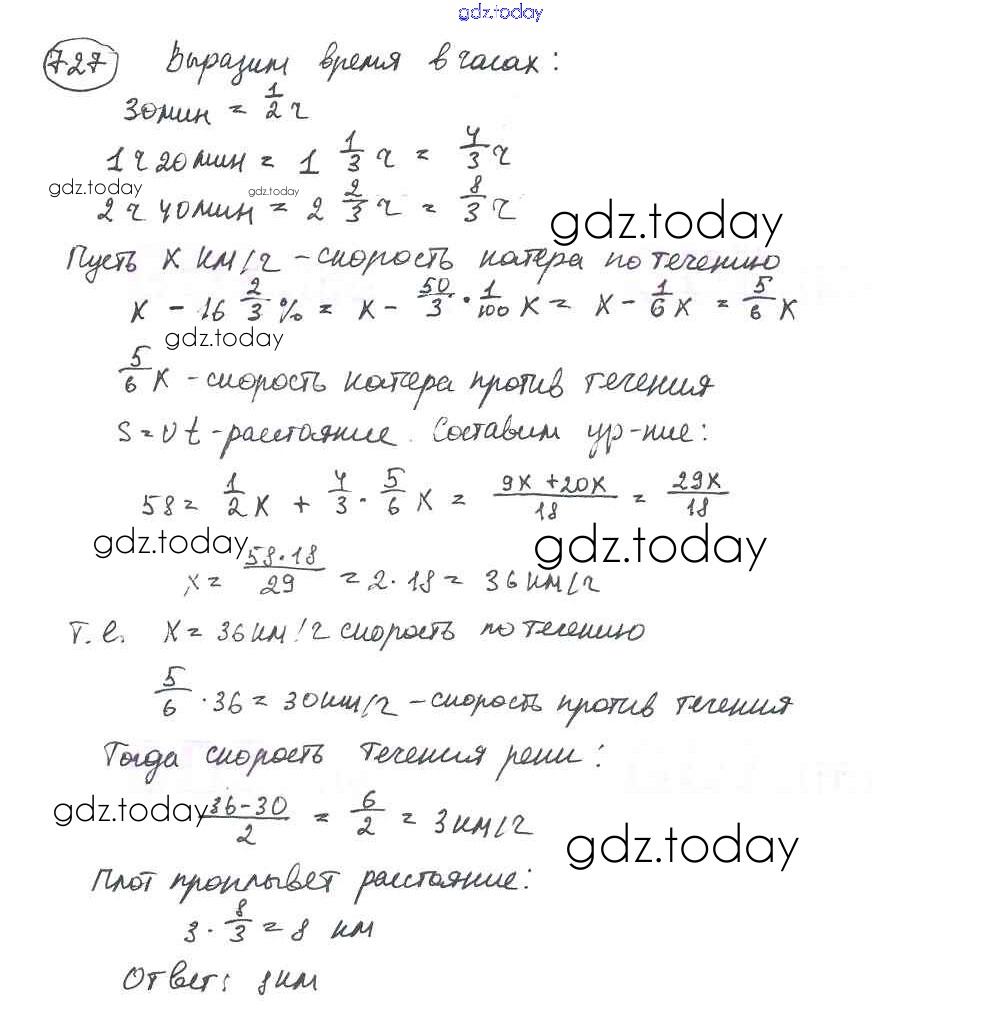 gdz.today
727 Выразим время в часах:
30мин = 1/2 ч
1 ч 20 мин = 1 1/3 ч = 4/3 ч
gdz.today gdz.today
2 ч 40 мин = 2 2/3 ч = 8/3 ч
gdz.today
Пусть x км/ч - скорость катера по течению
x - 16 2/3 % = x - 50/3 · 1/100 x = x - 1/6 x = 5/6 x
gdz.today
5/6 x - скорость катера против течения
S = υt - расстояние. Составим ур-ние:
58 = 1/2 x + 4/3 · 5/6 x = (9x + 20x)/18 = 29x/18
gdz.today gdz.today
x = (58·18)/29 = 2·18 = 36 км/ч
т.е. x = 36 км/ч скорость по течению
5/6 · 36 = 30 км/ч - скорость против течения
Тогда скорость течения реки:
gdz.today
(36-30)/2 = 6/2 = 3 км/ч
gdz.today
Плот проплывет расстояние:
3 · 8/3 = 8 км
Ответ: 8 км